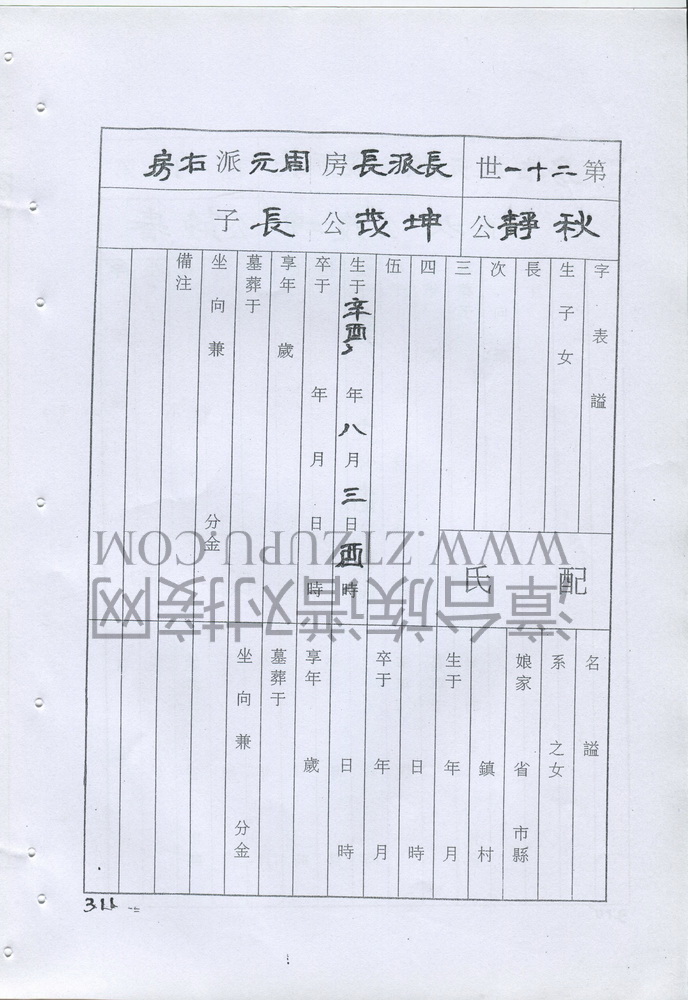 第二十一世
長派長房周元派右房
秋靜公
坤茂公長子
字表謚
生子女
長
次
三
四
伍
生于辛酉年八月三日酉時
卒于年月日時
享年歲
墓葬于
坐向兼分金
備注
配氏
名謚
系之女
娘家省市縣
鎮村
生于年月
日時
卒于年月
日時
享年歲
墓葬于
坐向兼分金
311
WWW.ZTZUPU.COM
漳台族谱对接网